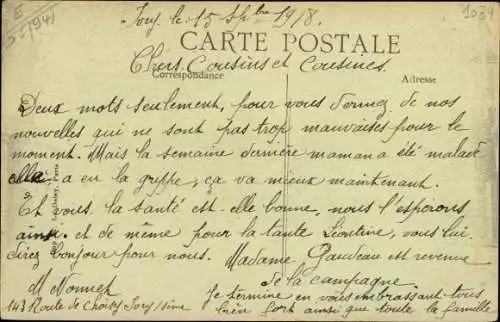 Ivry le 15 Spbre 1918.
CARTE POSTALE
Chers Cousins et Cousines.
Correspondance
Adresse
Deux mots seulement, pour vous donnez de nos
nouvelles qui ne sont pas trop mauvaises pour le
moment. Mais la semaine dernière maman a été malade
elle a eu la greppe, ça va mieux maintenant.
Et vous la santé est-elle bonne, nous l'esperons
ainsi et de même pour la tante Léontine, vous lui
direz bonjour pour nous. Madame Gaudeau est revenue
de la campagne.
M
143 Route de Choisy Ivry s/seine
Je termine en vous embrassant tous
bien fort ainsi que toute la famille